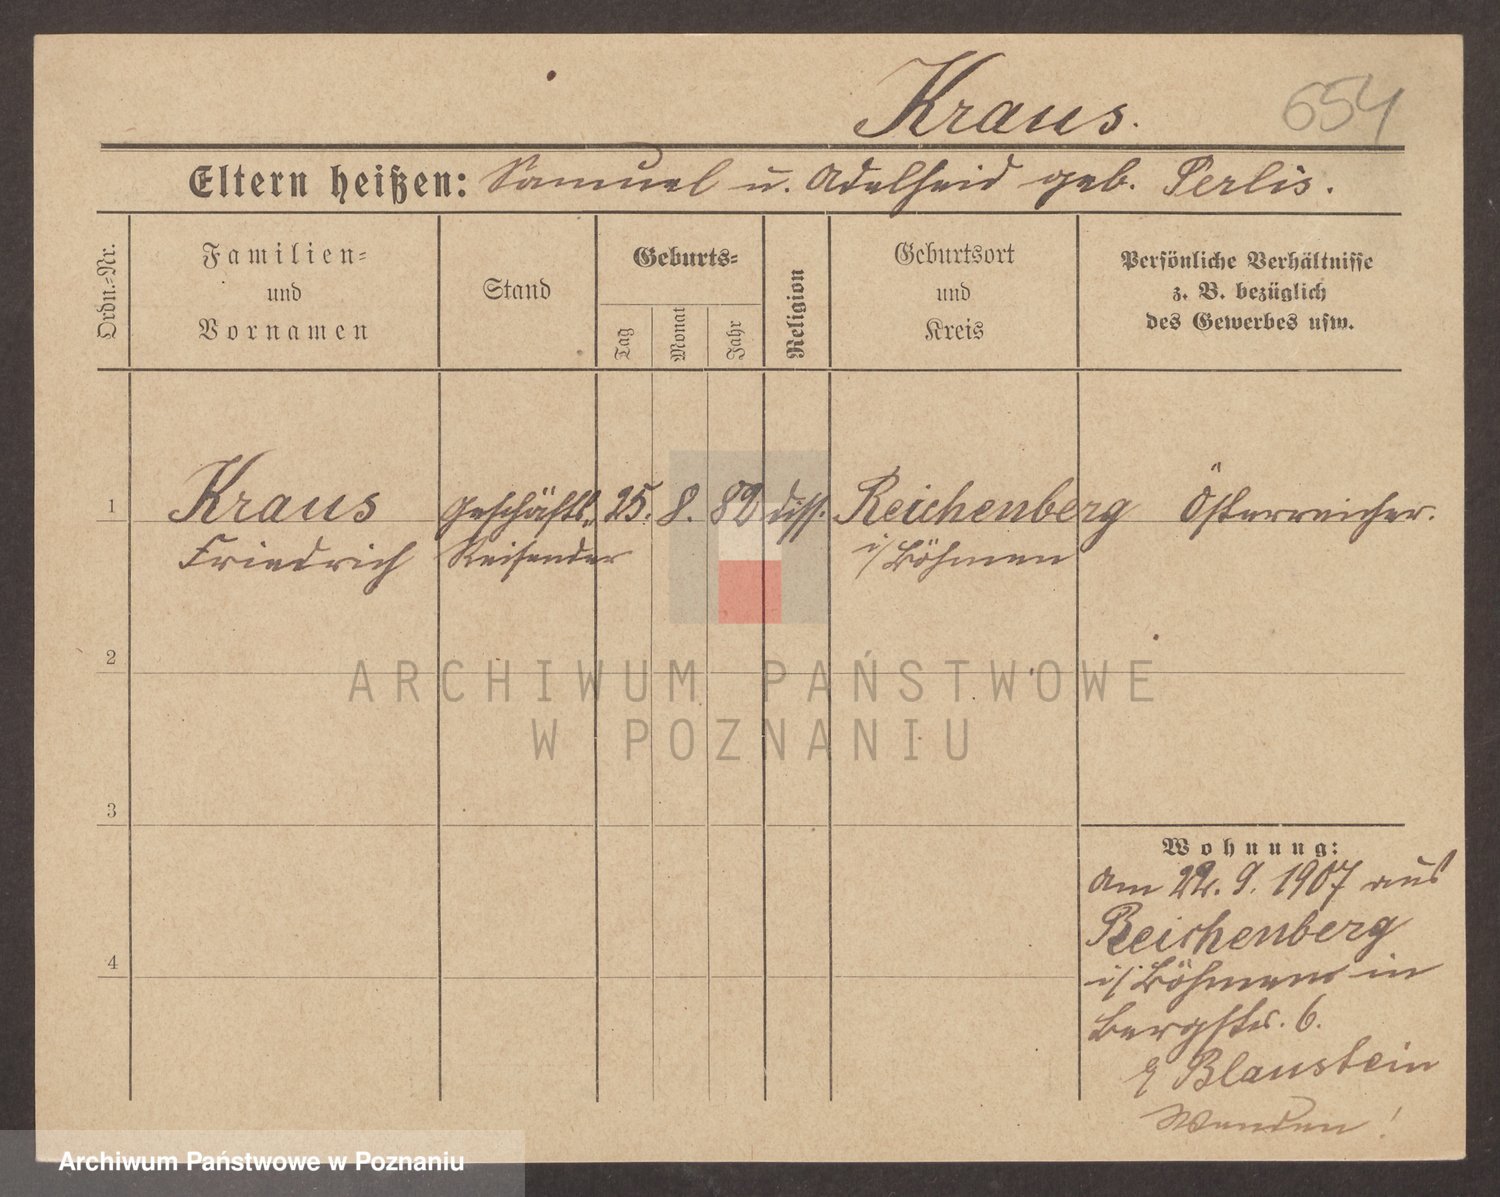 Kraus.
654
Eltern heißen: Samuel u. Adelheid geb. Perlis.
Ordn.-Nr.
Familien-
und
Vornamen
Stand
Geburts-
Tag
Monat
Jahr
Religion
Geburtsort
und
Kreis
Persönliche Verhältnisse
z. B. bezüglich
des Gewerbes usw.
1
Kraus Geschäfts- 25. 8. 82 diss. Reichenberg Österreicher.
Friedrich Reisender i/Böhmen
2
ARCHIWUM PAŃSTWOWE
W POZNANIU
3
Wohnung:
Am 22. 9. 1907 aus
Reichenberg
i/Böhmen in
Bergstr. 6.
Blaustein
4
Wenden!
Archiwum Państwowe w Poznaniu